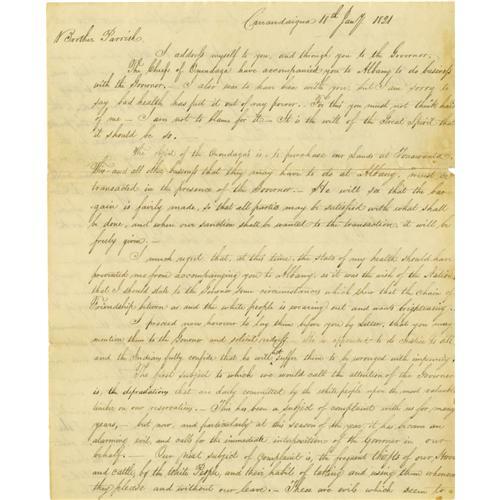 Canandaigua 18th Jany 1821
Brother Parrish
I address myself to you, and through you to the Governor.
The Chiefs of Onondaga have accompanied you to Albany to do business
with the Governor. — I also was to have been with you, but I am sorry to
say bad health has put it out of my power. For this you must not think hard
of me — I am not to blame for it — It is the will of the Great Spirit that
it should be so.
The object of the Onondagas is, to purchase our Lands at Tonawanda.
This and all other business that they may have to do at Albany, must be
transacted in the presence of the Governor — He will see that the bar-
gain is fairly made, so that all parties may be satisfied with what shall
be done, and when our sanction shall be wanted to the transaction, it will be
freely given. —
I much regret that, at this time, the state of my health should have
prevented me from accompanying you to Albany, as it was the wish of the Nation
that I should state to the Governor some circumstances which show that the chain of
Friendship between us and the white people is wearing out and wants brightening. —
I proceed now however to lay them before you by Letter, that you may
mention them to the Governor and solicit redress. He is appointed to do Justice to all
and the Indians fully confide that he will not suffer them to be wronged with impunity.
The first subject to which we would call the attention of the Governor
is, the depredations that are daily committed by the white people upon the most valuable
timber on our reservations. — This has been a subject of complaint with us for many
years, — but now, and particularly at this season of the year, it has become an
alarming evil, and calls for the immediate interposition of the Governor in our
behalf. — Our next subject of complaint is, the frequent thefts of our Horses
and cattle by the White People, and their habit of taking and using them whenever
they please and without our leave. — These are evils which seem to